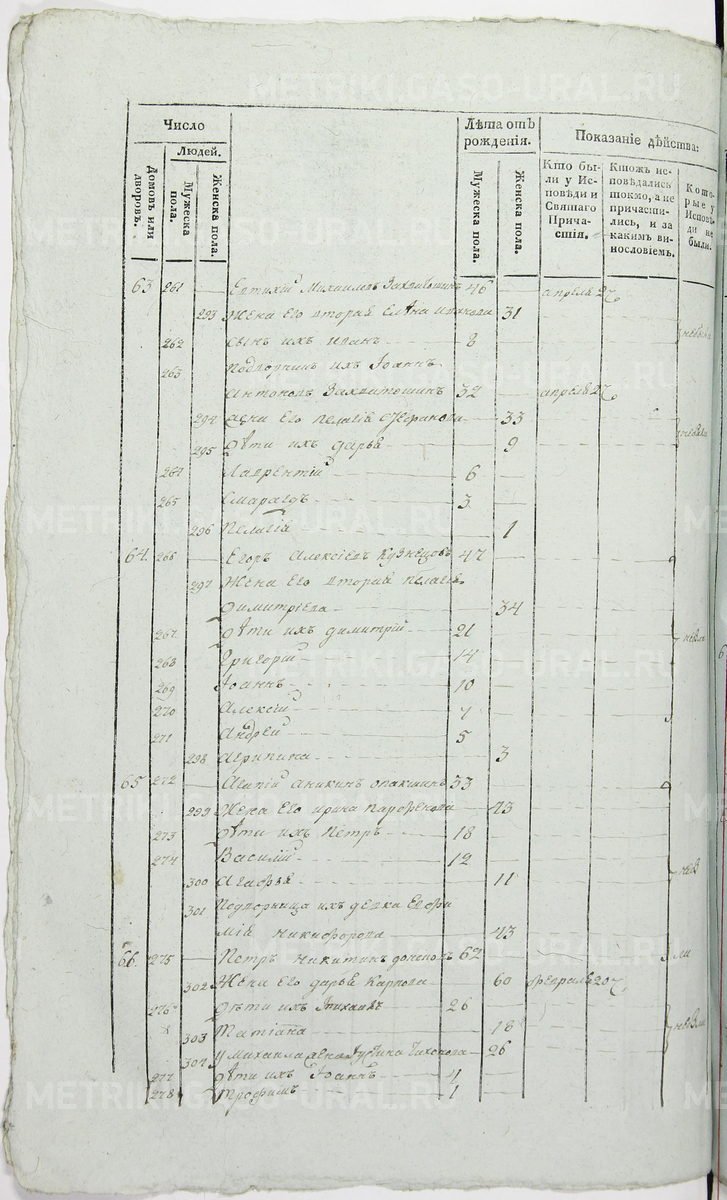 Число
Людей.
Домовъ или дворовъ.
Мужеска пола.
Женска пола.
Лѣта отъ рожденія.
Мужеска пола.
Женска пола.
Показаніе дѣйства:
Кто были у Исповѣди и Святаго Причастія.
Ктожъ исповѣдались токмо, а не причастились, и за какимъ винословіемъ.
Которые у Исповѣди не были.
63 261 Евтихій Михаиловъ 46 апреля 27
293 Жена его вторая Елена 31
262 сынъ ихъ Иванъ 8
263 Подворникъ ихъ Іоаннъ
Антоновъ 32 апреля 27
294 жена его Пелагія Стефанова 33
295 дѣти ихъ дарья 9
264 Лаврентій 6
265 Смарагдъ 3
296 Пелагія 1
64. 266 Егоръ Алексіевъ Кузнецовъ 47
297 Жена его вторая Пелагія
Димитріева 34
267 дѣти ихъ димитрій 21
268 Григорій 14
269 Іоаннъ 10
270 Алексій 7
271 Андрей 5
298 Агрипина 3
65 272 Агапій Аникинъ 33
299 Жена его ирина Парфенова 43
273 дѣти ихъ Петръ 18
274 Василій 12
300 Агафья 11
301 Подворница ихъ девка Евфи
мія Никифорова 43
66. 275 Петръ Никитинъ 62
302 Жена его дарья Карпова 60 Февраля 20
276 дѣти ихъ 26
303 Татіана 18
304 у михаила жена 26
277 дѣти ихъ Іоаннъ 4
278 Трофимъ 1
METRIKI.GASO-URAL.RU